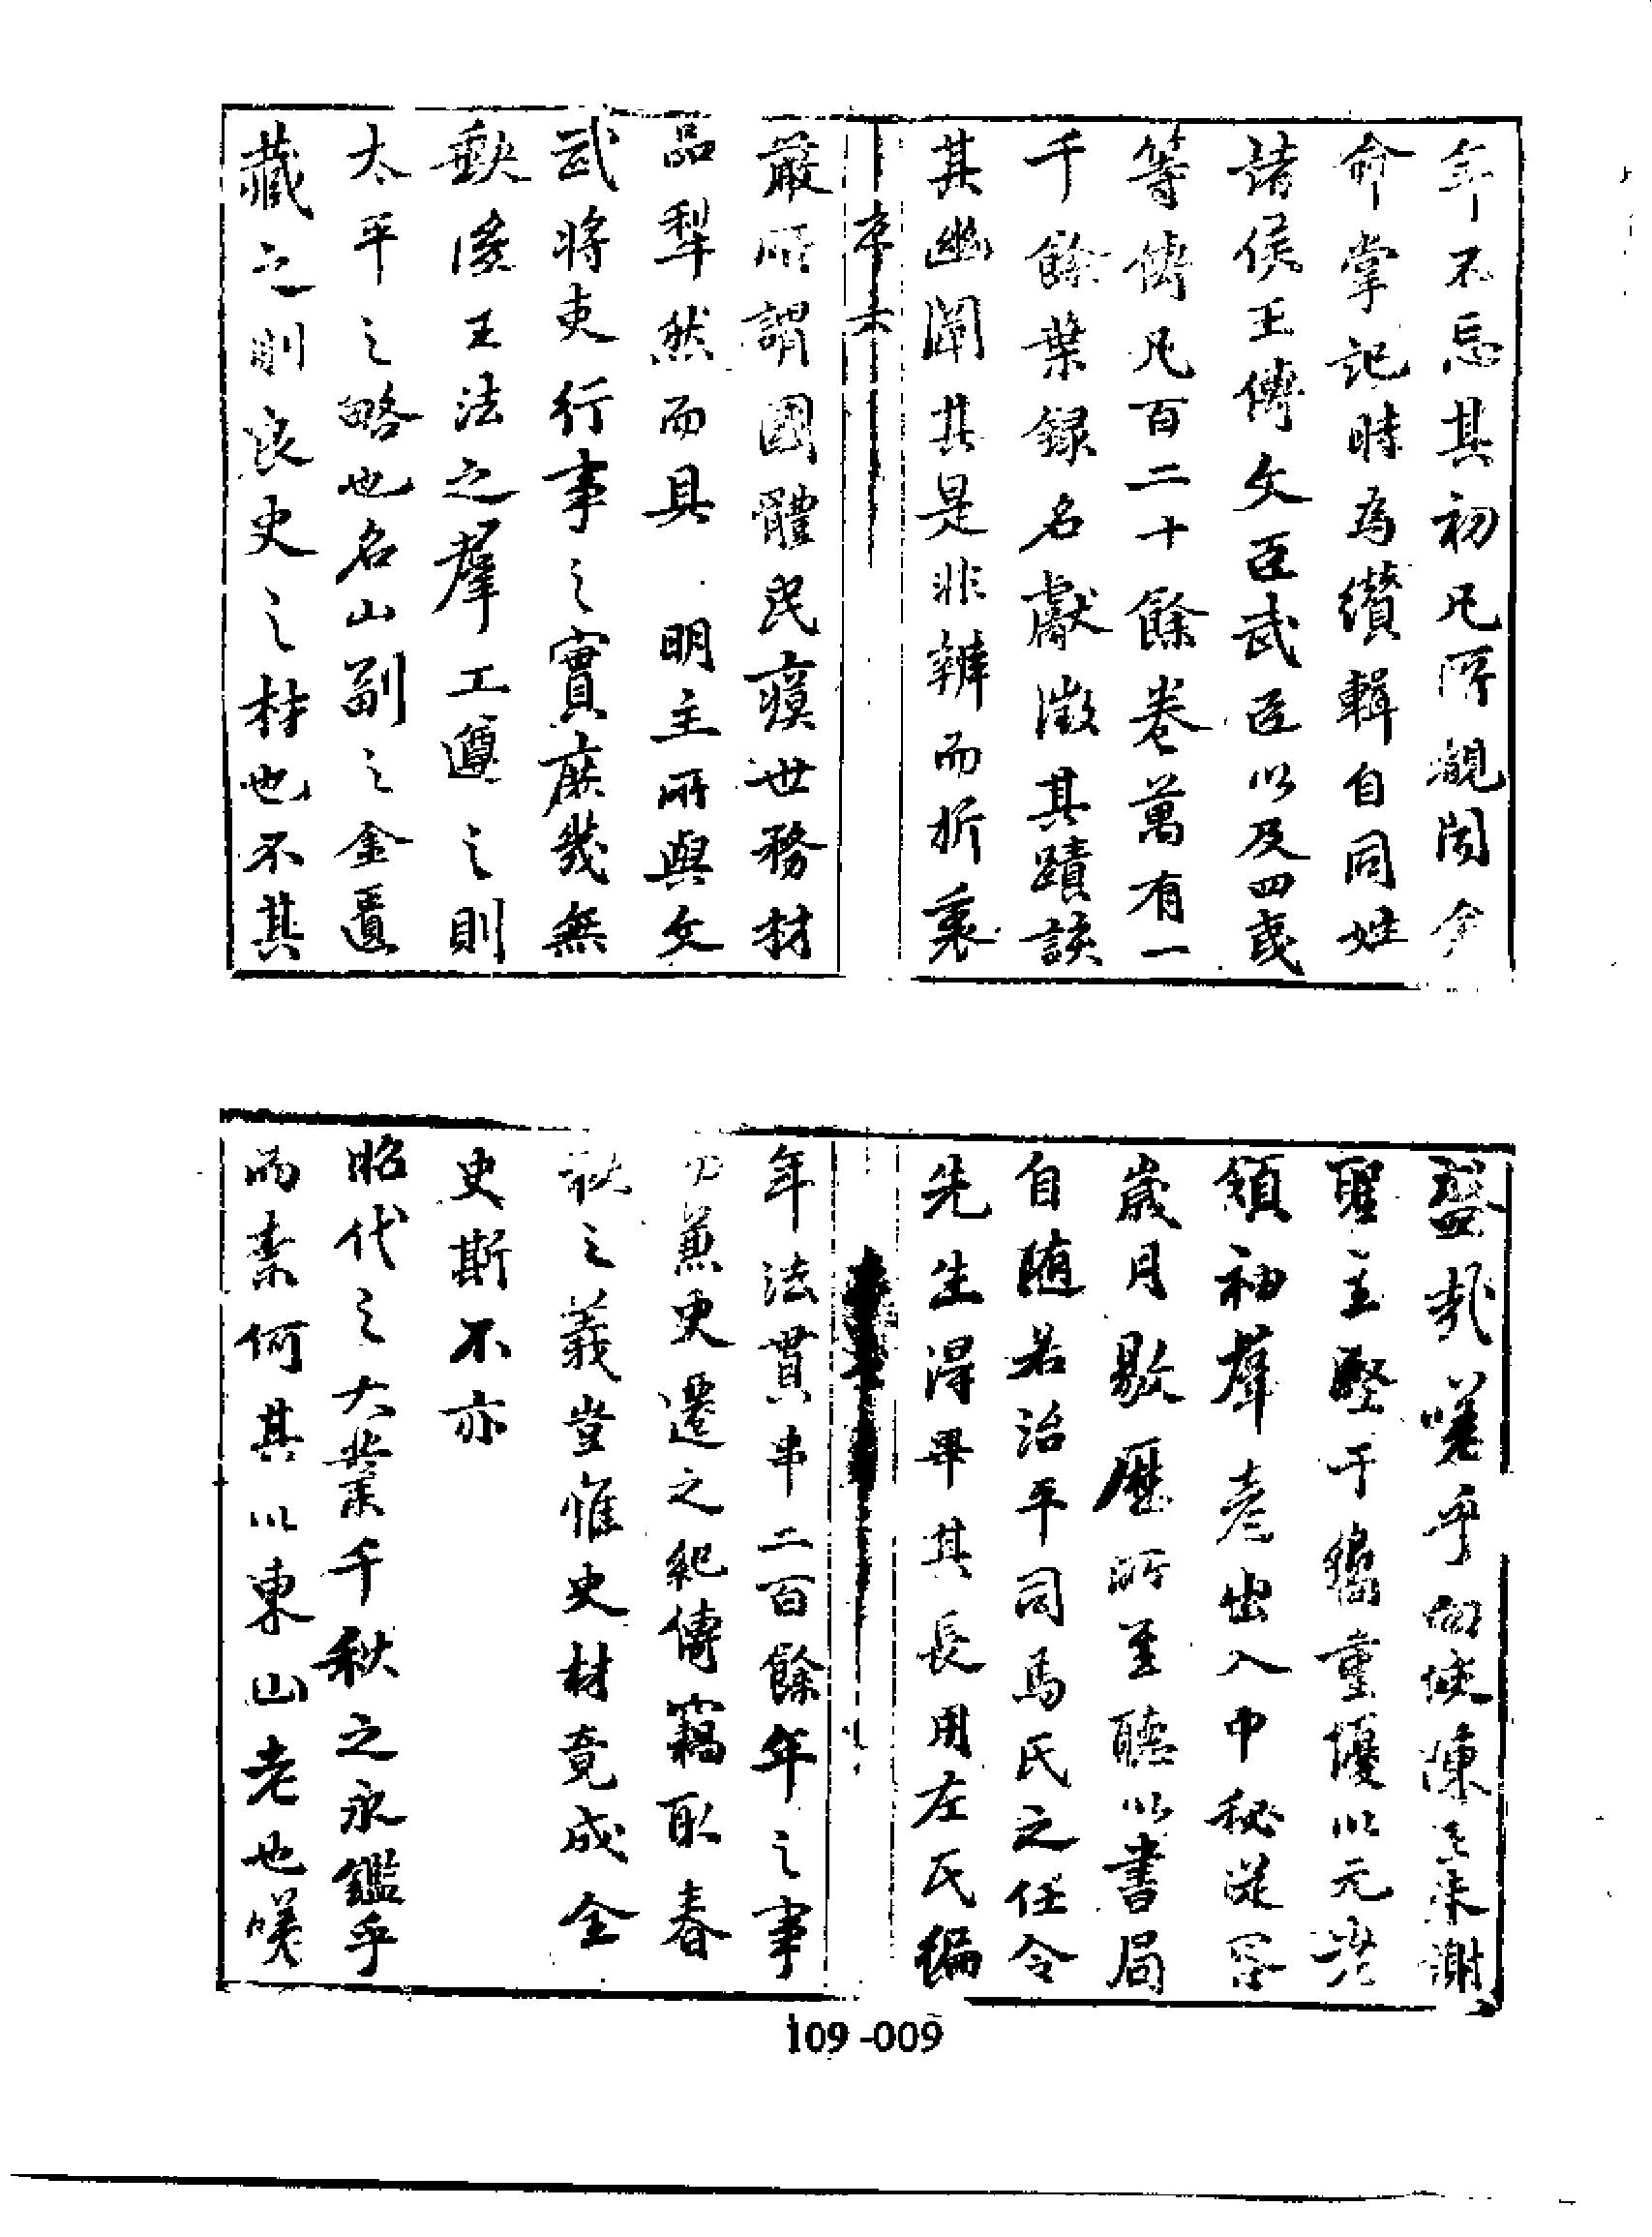 年不忘其初凡所覩聞令
俞掌記時為纘輯自同姓
諸侯王傳文臣武臣以及四夷
等傳凡百二十餘卷萬有一
千餘葉錄名獻徵其蹟該
其幽闡其是非辨而折衷
序六
嚴所謂國體民瘼世務材
品犁然而具明主所與文
武將吏行事之實庶幾無
歝後王法之羣工遵之則
太平之略也名山副之金匱
藏之則良史之材也不其
盛哉嗟乎向使陳王朱謝
聖主堅于鴻重優以元老
領袖羣彥出入中秘從容
歲月敭歷所至聽以書局
自隨若治平司馬氏之任令
先生得畢其長用左氏編
年法貫串二百餘年之事
兼史遷之紀傳竊取春
秋之義豈惟史材竟成全
史斯不亦
昭代之大業千秋之永鑑乎
而柰何其以東山老也嗟
109-009